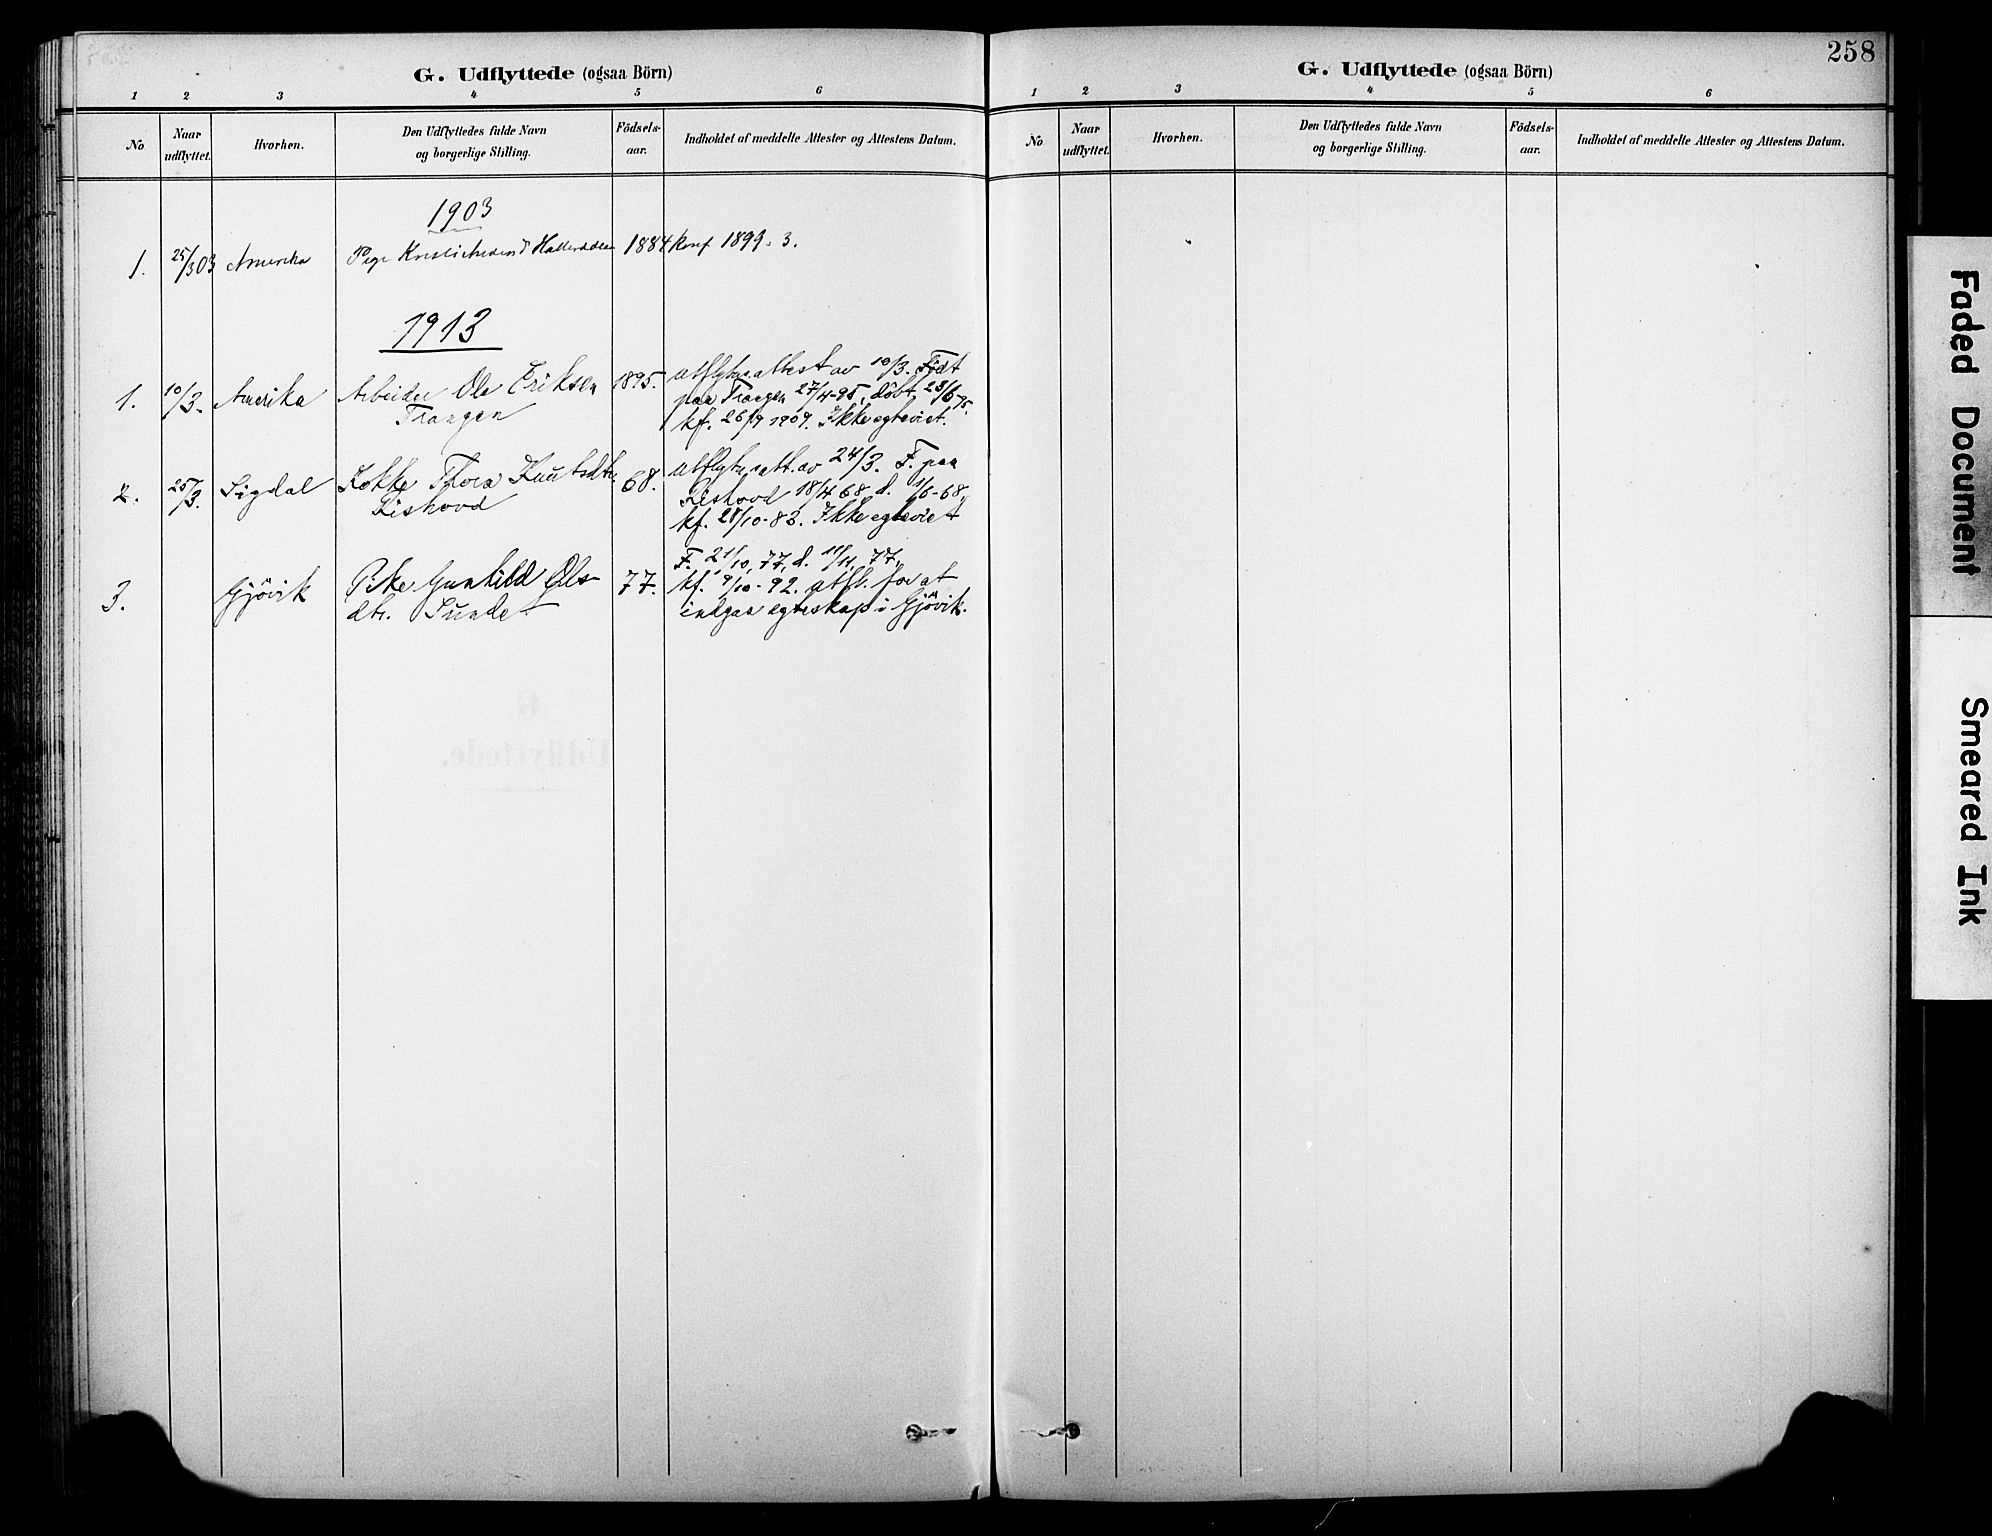 G. Udflyttede (ogsaa Börn)
1 2 3 4 5 6
No
Naar udflyttet.
Hvorhen.
Den Udflyttedes fulde Navn og borgerlige Stilling.
Födsels-aar.
Indholdet af meddelte Attester og Attestens Datum.
1903
1. 25/3 03 Amerika Pige 1884 Konf 1899. 3.
1913
1. 10/3. Amerika Arbeider Ole Eriksen 1895. utflytn.attest av 10/3. Födt
Traagen paa Traagen 27/4-95, döbt 23/6 95.
kf. 26/9 1909. Ikke egteviet.
2. 25/3. Sigdal Kokke Thora Knutsdtr. 68. utflytn.att. av 24/3. F. paa
Rishovd Rishovd 18/4 68, d. 1/6-68,
kf. 28/10-83. Ikke egteviet
3. Gjövik Pike Gunhild Ols- 77. F. 21/10, 77, d. 11/11, 77,
dtr. Sunde kf. 9/10-92. utfl. for at
indgaa egteskap i Gjövik.
G.
Udflyttede.
258
G. Udflyttede (ogsaa Börn)
1 2 3 4 5 6
No
Naar udflyttet.
Hvorhen.
Den Udflyttedes fulde Navn og borgerlige Stilling.
Födsels-aar.
Indholdet af meddelte Attester og Attestens Datum.
Faded Document
Smeared Ink